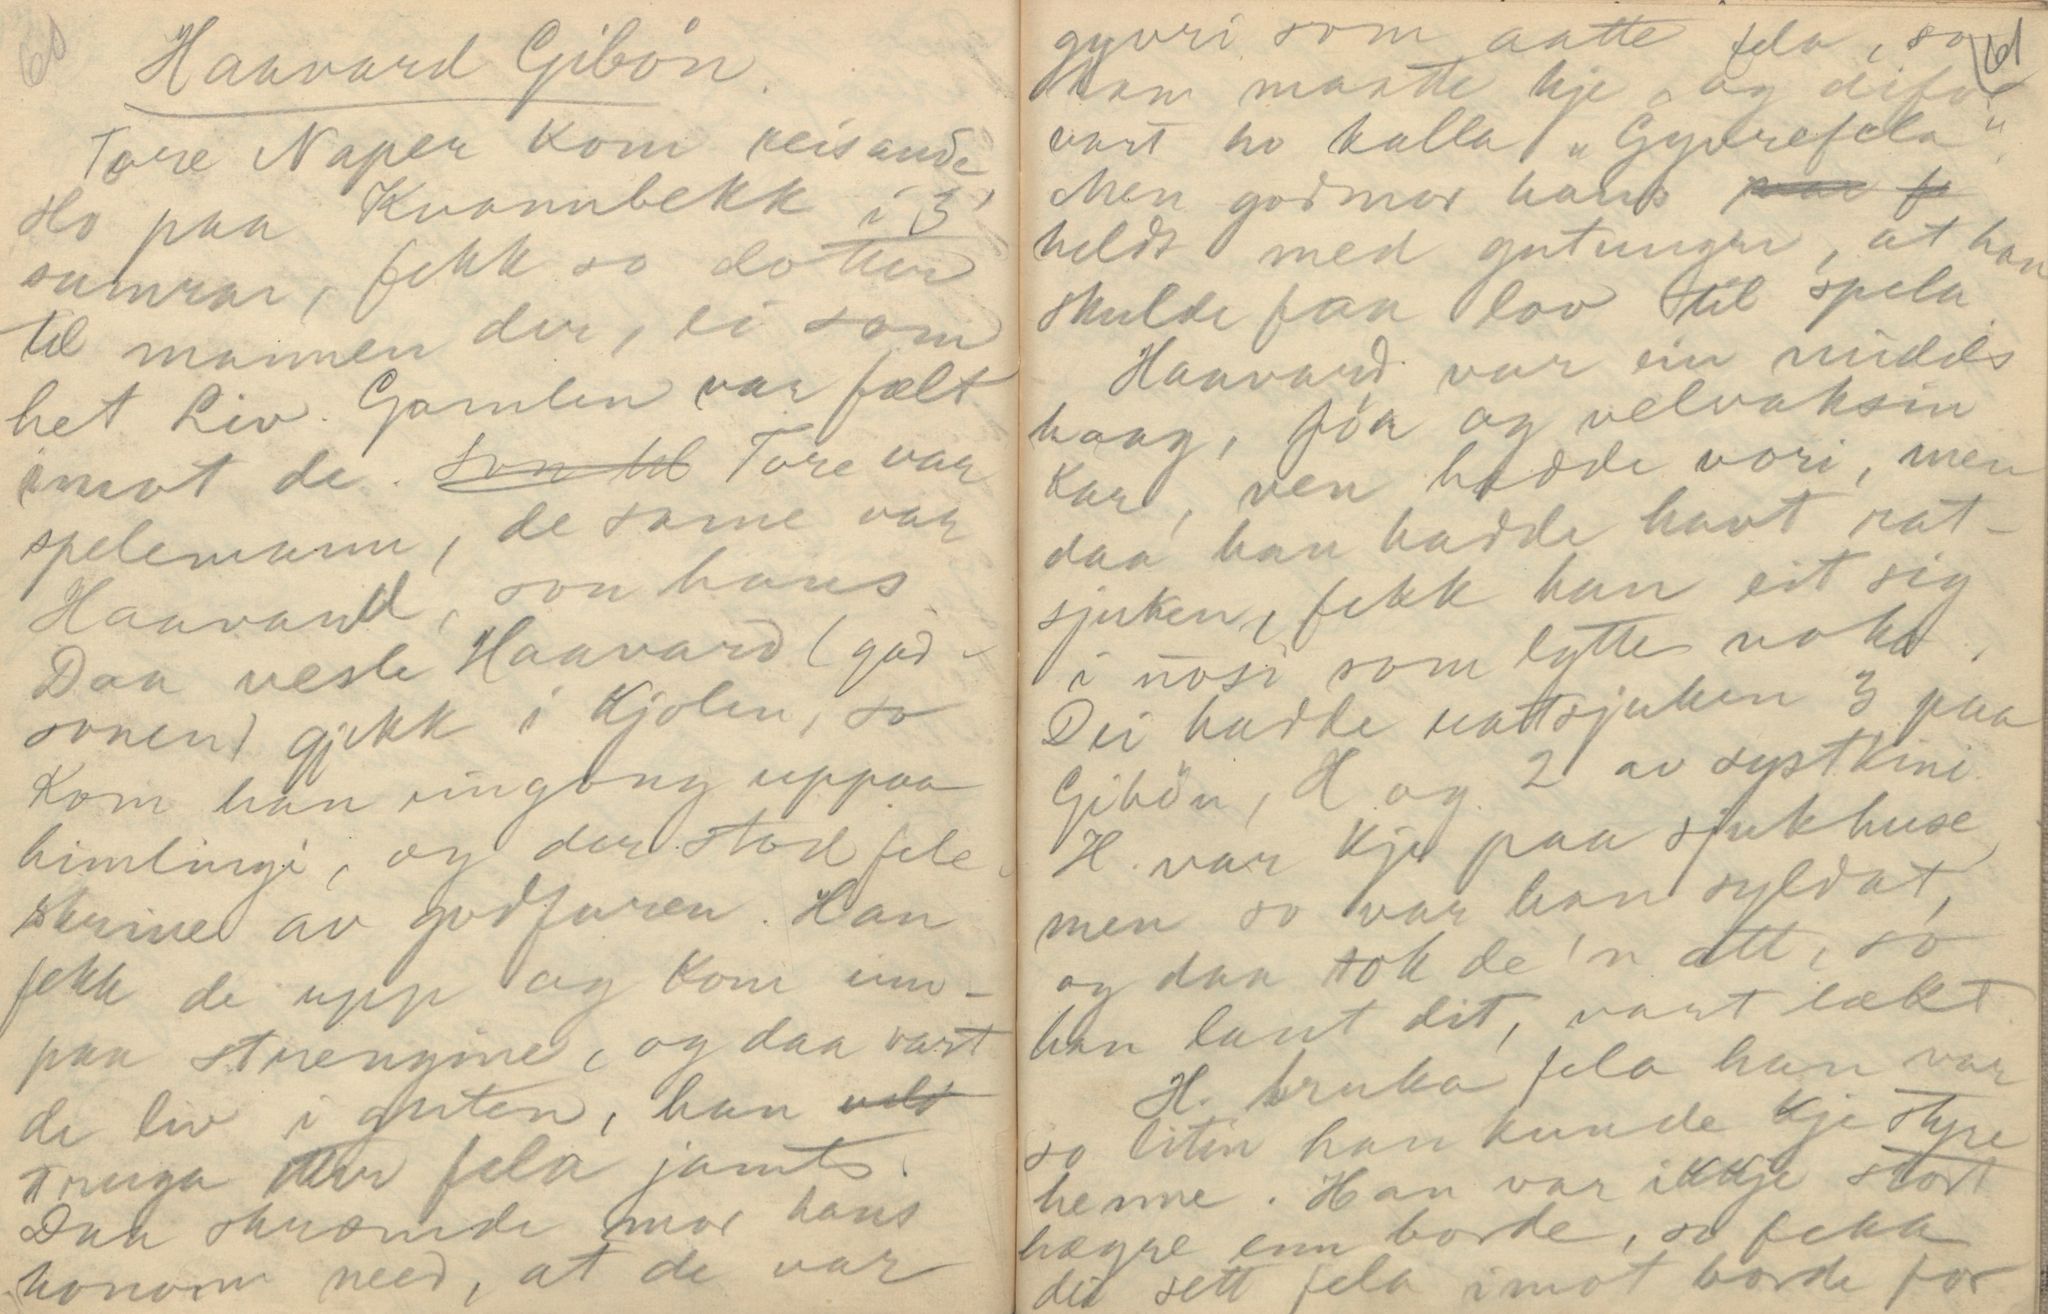 60
Haavard Gibøn.
Tore Naper kom reisande
Ho paa Kvannbekk i 3
sumrar, fekk so dotter
til mannen der, ei som
het Liv. Gamlen var fælt
imot de. Son til Tore var
spelemann, de same var
Haavard, son hans
Daa vesle Haavard (god-
sonen) gjekk i kjolen, so
kom han eingong uppaa
himlingi, og der stod fele-
skrine av godfaren. Han
fekk de upp og kom inn-
paa strengine, og daa vart
de liv i guten, han vild
truga etter fela jamt.
Daa skræmde mor hans
honom med, at de var
61
gyvri som aatte fela, so
han maatte kje, og difor
vart ho kalla „Gyvrefela".
Men godmor hans
heldt med gutungen, at han
skulde faa lov til spela.
Haavard var ein midels
haag, før og velvaksin
kar, ven hadde vori, men
daa han hadde havt rat-
sjuken, fekk han eit sig
i nosi som lytte noko.
Dei hadde rattsjuken 3 paa
Gibøn, H og 2 av systkini.
H. var kje paa sjukhuse
men so var han syldat,
og daa tok de 'n att, so
han laut dit, vart lækt
H. bruka fela han var
so litin han kunde kje styre
henne. Han var ikkje stort
høgre enn borde, so fekk
dei sett fela imot borde for